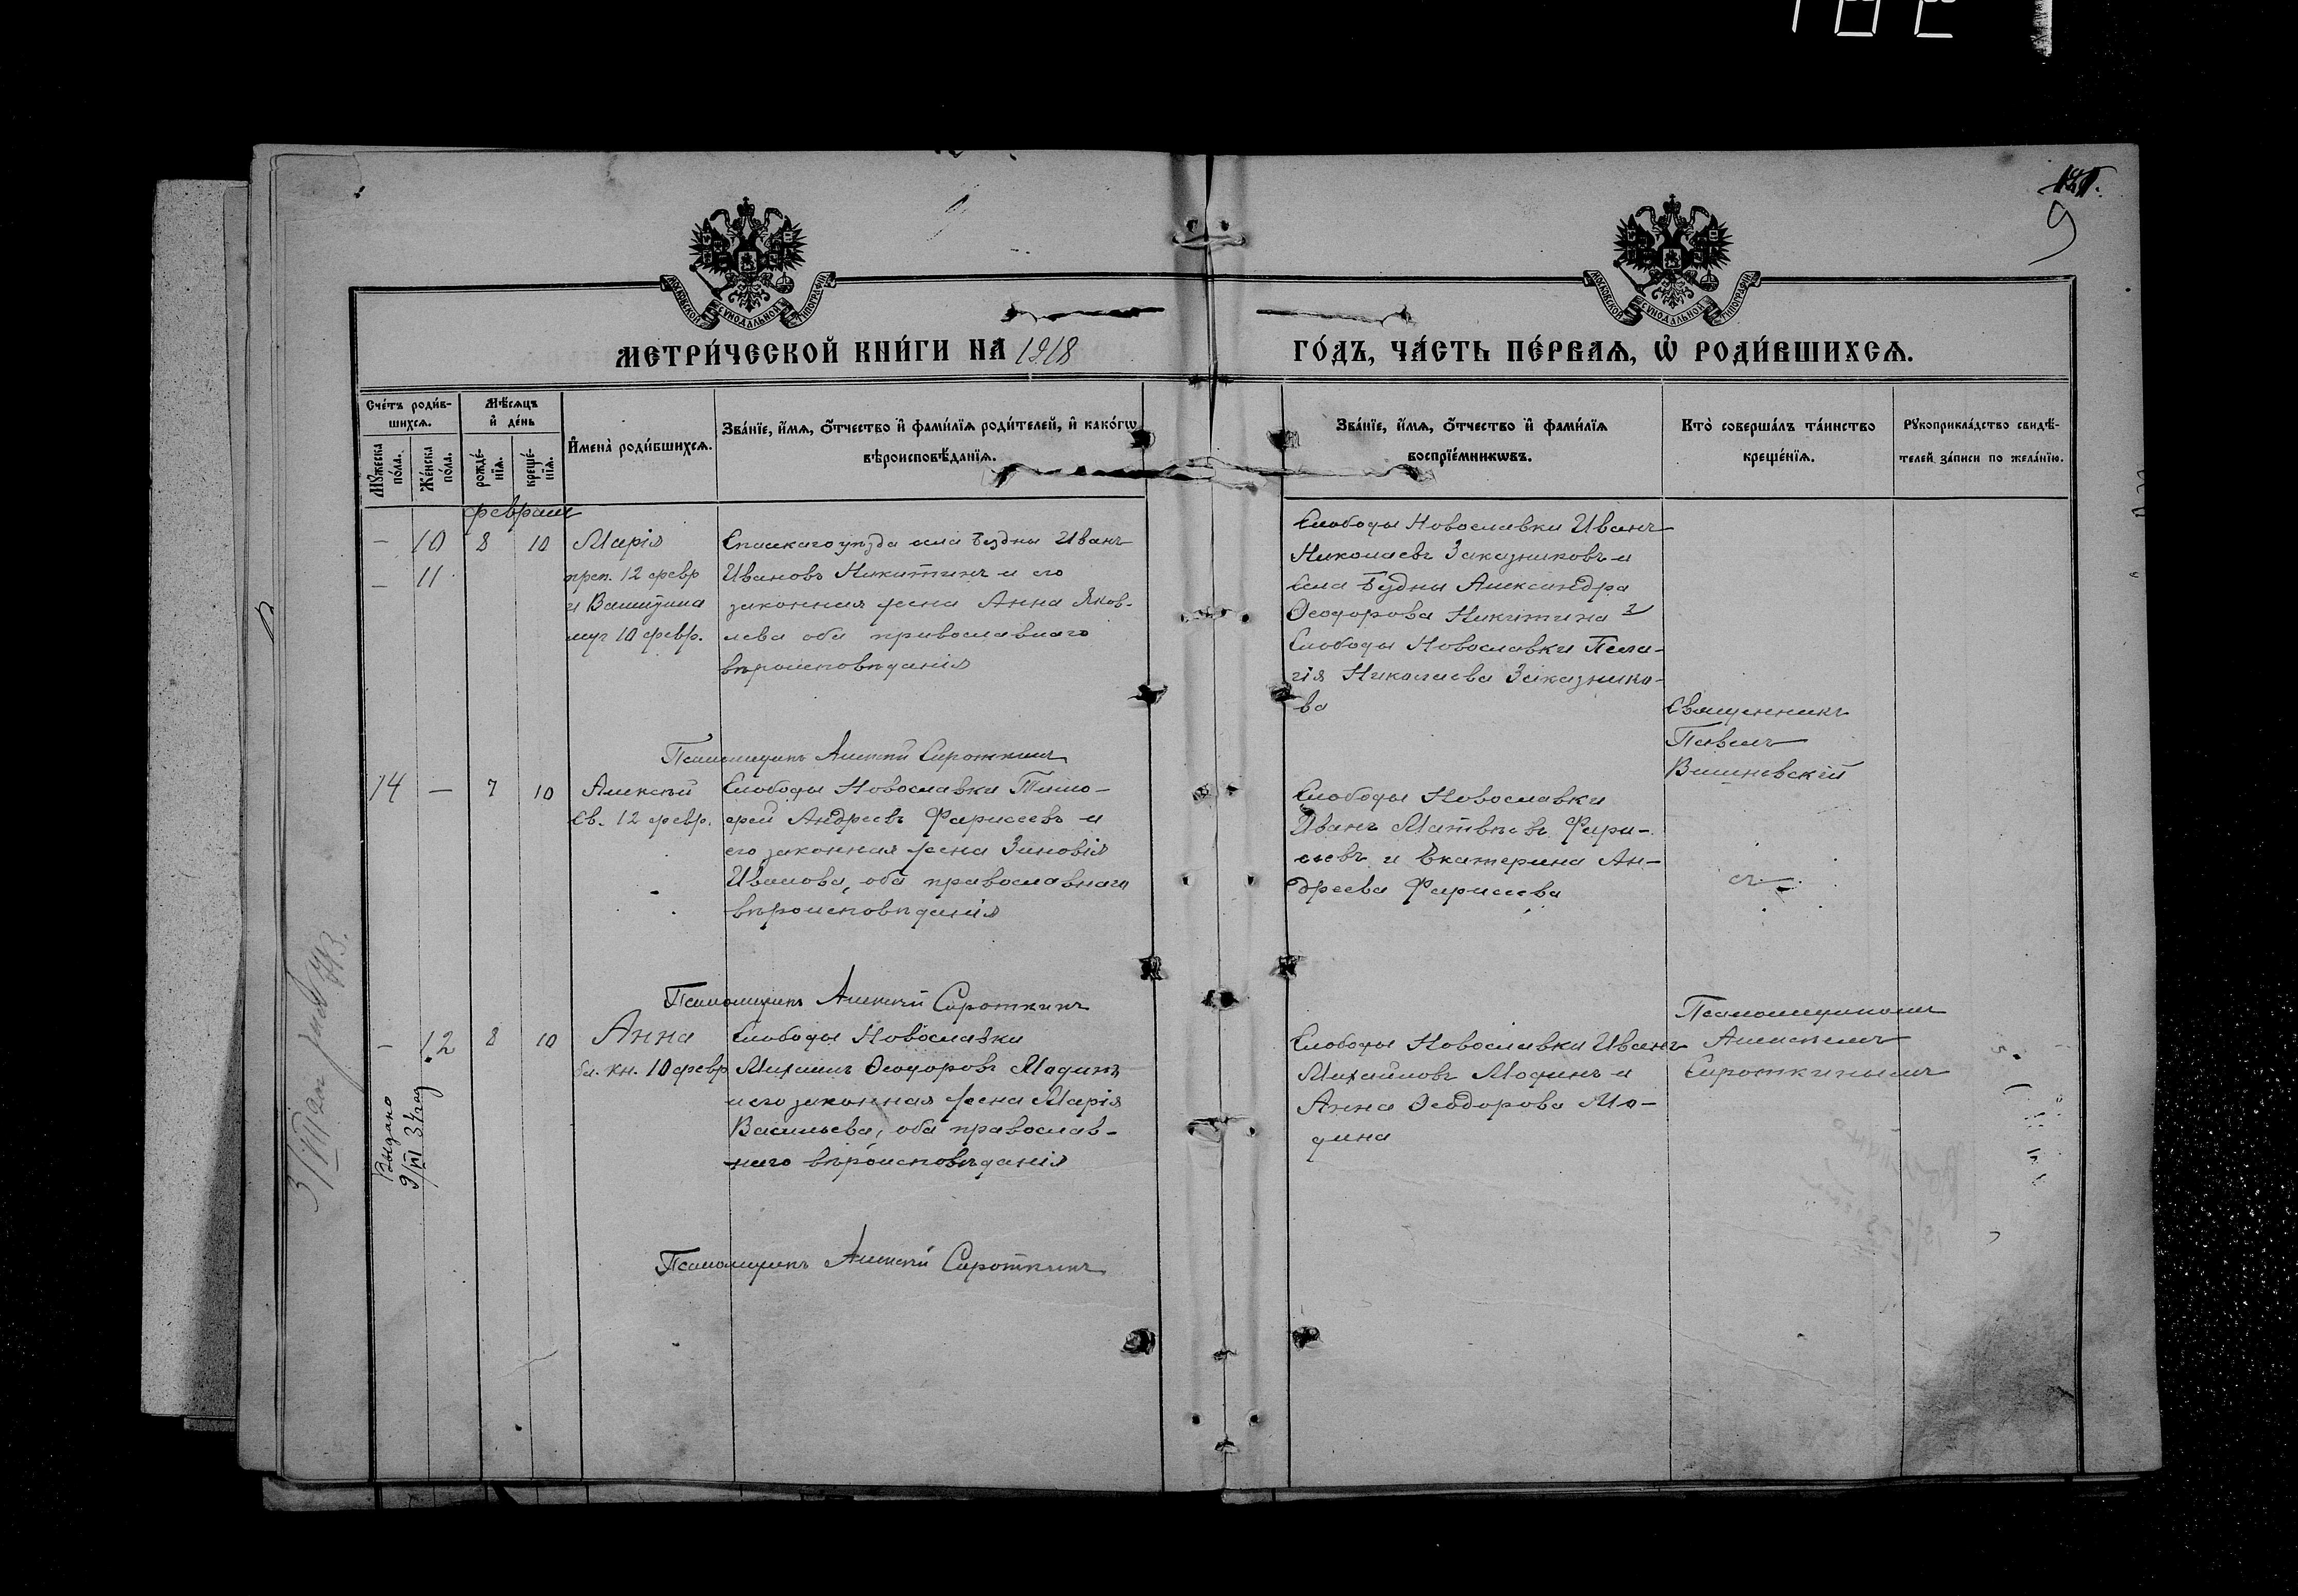 9
МОСКОВСКОЙ СѴНОДАЛЬНОЙ ТИПОГРАФІИ
МОСКОВСКОЙ СѴНОДАЛЬНОЙ ТИПОГРАФІИ
МЕТРИ́ЧЕСКОЙ КНИ́ГИ НА 1918
ГО́ДЪ, ЧА́СТЬ ПЕ́РВАѦ, Ѡ РОДИ́ВШИХСѦ.
Сче́тъ роди́в-
шихсѧ.
Мꙋ́жеска по́ла.
Же́нска по́ла.
Мѣ́сѧцъ
и҆ де́нь
рожде́-
нїѧ.
креще́-
нїѧ.
И҆мена̀ роди́вшихсѧ.
Зва́нїе, и҆́мѧ, ѻ҆́тчество и҆ фами́лїѧ роди́телей, и҆ како́гѡ
вѣроисповѣ́данїѧ.
Зва́нїе, и҆́мѧ, ѻ҆́тчество и҆ фами́лїѧ
воспрїе́мникѡвъ.
Кто̀ соверша́лъ та́инство
креще́нїѧ.
Рꙋкоприкла́дство свидѣ́-
телей за́писи по жела́нїю.
февраля
— 10 8 10 Марія
— 11
преп. 12 февр
10 февр.
Спасскаго уѣзда села Бездны Иванъ
Ивановъ Никитинъ и его
законная жена Анна Яков-
лева оба православнаго
вѣроисповѣданія
Слободы Новославки Иванъ
Николаевъ Заказниковъ и
села Бездны Александра
Ѳеодорова Никитина
Слободы Новославки Пела-
гія Николаева Заказнико-
ва
Священникъ
Павелъ
Вишневскій
Псаломщикъ Алексѣй Сироткинъ
14 — 7 10 Алексѣй
Св. 12 февр.
Слободы Новославки Тимо-
фей Андреевъ Фарисеевъ и
его законная жена Зиновія
Иванова, оба православнаго
вѣроисповѣданія
Слободы Новославки
Иванъ Матвѣевъ Фари-
сеевъ и Екатерина Ан-
дреева Фарисеева
съ
Псаломщикъ Алексѣй Сироткинъ
— 12 8 10 Анна
бл. кн. 10 февр
Слободы Новославки
Михаилъ Ѳеодоровъ Модинъ
и его законная жена Марія
Васильева, оба православ-
наго вѣроисповѣданія
Слободы Новославки Иванъ
Михайловъ Модинъ и
Анна Ѳеодорова Мо-
дина
Псаломщикомъ
Алексѣемъ
Сироткинымъ
Выдано
9/VI 34 год
Псаломщикъ Алексѣй Сироткинъ